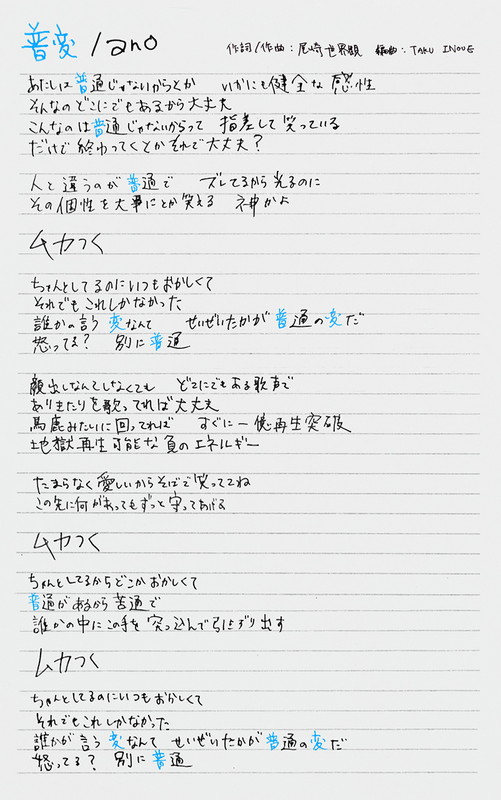 普変 / ano 作詞/作曲：尾崎世界観 編曲：TAKU INOUE
あたしは普通じゃないからとか いかにも健全な感性
そんなのどこにでもあるから大丈夫
こんなのは普通じゃないからって 指差して笑っている
だけで終わってくとかそれで大丈夫？
人と違うのが普通で ズレてるから光るのに
その個性を大事にとか笑える 神かよ
ムカつく
ちゃんとしてるのにいつもおかしくて
それでもこれしかなかった
誰かの言う変なんて せいぜいたかが普通の変だ
怒ってる？ 別に普通
顔出しなんてしなくても どこにでもある歌声で
ありきたりを歌ってれば大丈夫
馬鹿みたいに回ってれば すぐに一億再生突破
地獄再生可能な負のエネルギー
たまらなく愛しいからそばで笑っててね
この先に何があってもずっと守ってあげる
ムカつく
ちゃんとしてるからどこかおかしくて
普通があるから苦通で
誰かの中にこの手を突っ込んで引きずり出す
ムカつく
ちゃんとしてるのにいつもおかしくて
それでもこれしかなかった
誰かが言う変なんて せいぜいたかが普通の変だ
怒ってる？ 別に普通